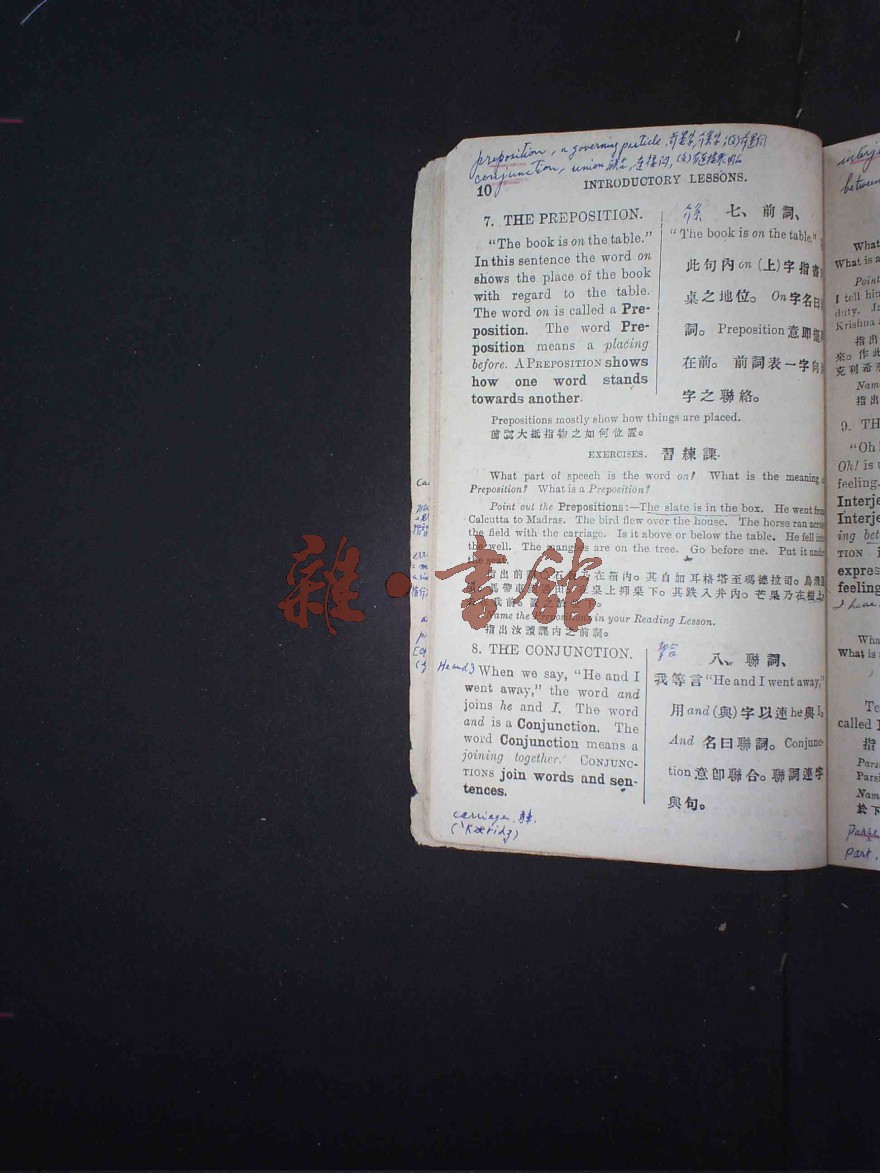 preposition, a governing particle,
conjunction, union
10
INTRODUCTORY LESSONS.
7. THE PREPOSITION.
"The book is on the table."
In this sentence the word on
shows the place of the book
with regard to the table.
The word on is called a Pre-
position. The word Pre-
position means a placing
before. A PREPOSITION shows
how one word stands
towards another.
七、前詞、
"The book is on the table."
此句內 on (上)字指書
桌之地位。On字名曰
詞。Preposition意即擺
在前。前詞表一字向
字之聯絡。
Prepositions mostly show how things are placed.
前詞大抵指物之如何位置。
EXERCISES. 習練課.
What part of speech is the word on? What is the meaning
Preposition? What is a Preposition?
Point out the Prepositions:—The slate is in the box. He went from
Calcutta to Madras. The bird flew over the house. The horse ran across
the field with the carriage. Is it above or below the table. He fell into
the well. The mangoes are on the tree. Go before me. Put it under
the seat.
指出前詞 石 乃在箱內。其自加耳格塔至瑪德拉司。鳥飛
馬帶車 桌上抑桌下。其跌入井內。芒菓乃在樹上
我前。
Name the Prepositions in your Reading Lesson.
指出汝讀課內之前詞。
8. THE CONJUNCTION.
He and I
When we say, "He and I
went away," the word and
joins he and I. The word
and is a Conjunction. The
word Conjunction means a
joining together. CONJUNC-
TIONS join words and sen-
tences.
八、聯詞、
我等言"He and I went away,"
用and(與)字以連he與I。
And 名曰聯詞。Conjunc-
tion意卽聯合。聯詞連字
與句。
carriage.
('kæridʒ)
雜·書館
interj
between
What
What is a
Point
I tell him
duty. Ja
Krishna a
指出
來。作此
克利希那
Name
指出
9. TH
"Oh!
Oh! is u
feeling.
Interje
Interje
ing bet
TION i
expres
feeling
I have
Wha
What is
Te
called I
指
Pars
Parsi
Nam
於下
parse
part.